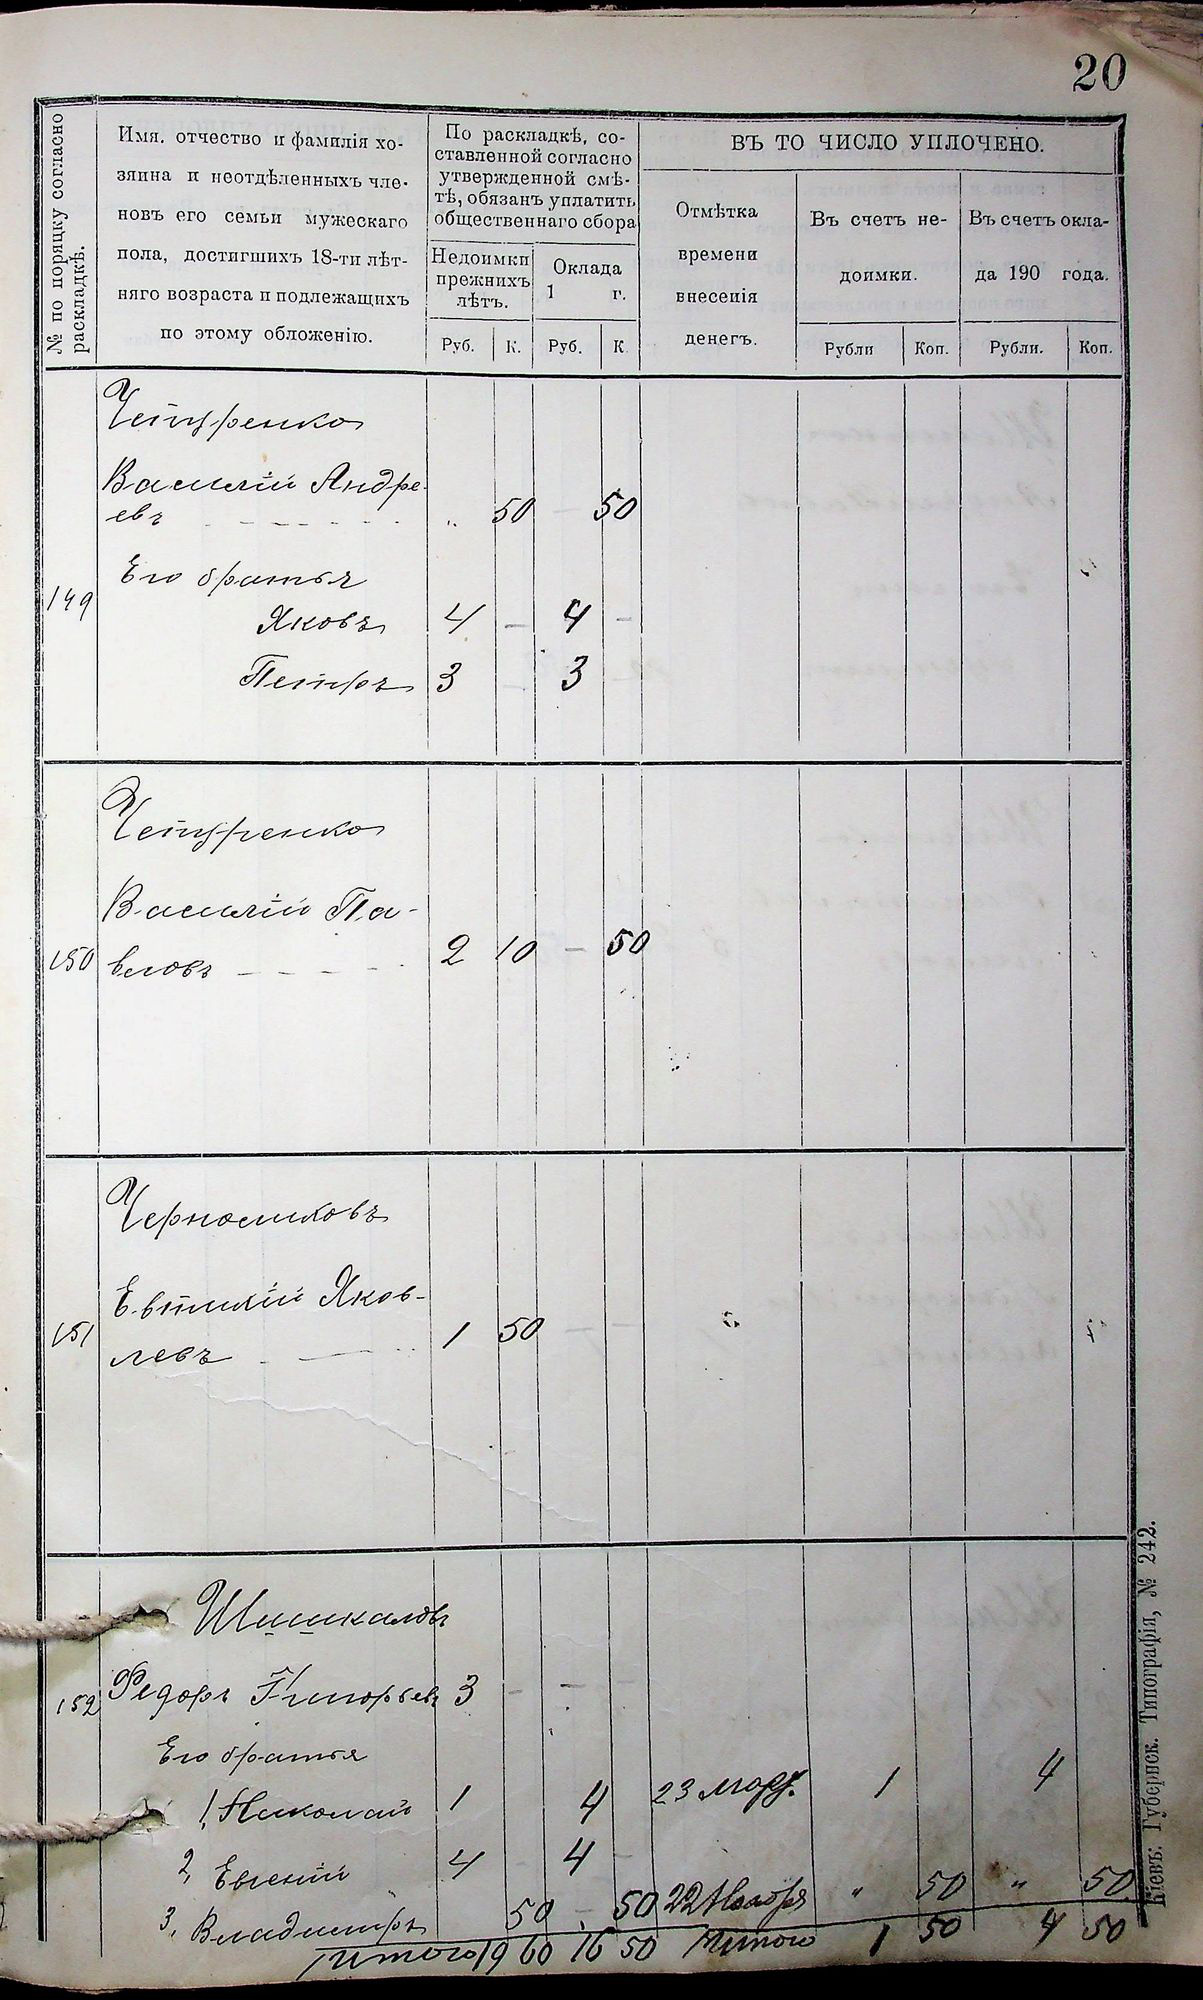 20
№ по порядку согласно
раскладкѣ.
Имя, отчество и фамилія хо-
зяина и неотдѣленныхъ чле-
новъ его семьи мужескаго
пола, достигшихъ 18-ти лѣт-
няго возраста и подлежащихъ
по этому обложенію.
По раскладкѣ, со-
ставленной согласно
утвержденной смѣ-
тѣ, обязанъ уплатить
общественнаго сбора
Недоимки
прежнихъ
лѣтъ.
Оклада
1 г.
Руб. К. Руб. К
ВЪ ТО ЧИСЛО УПЛОЧЕНО.
Отмѣтка
времени
внесенія
денегъ.
Въ счетъ не-
доимки.
Въ счетъ окла-
да 190 года.
Рубли Коп. Рубли. Коп.
Чепуренко
Василій Андре-
евъ - - - - - „ 50 — 50
Его братья
149
Яковъ 4 — 4 —
Петръ 3 — 3
Чепуренко
Василій Па-
150 вловъ - - - - 2 10 — 50
Евтихій Яков-
151 левъ - — 1 50 — —
Шишкаловъ
152 Федоръ Григорьевъ 3 — — —
Его братья
1, Николай 1 4 23 март. 1 4
2, Евгеній 4 — 4 —
3, Владиміръ 50 — 50 22 Ноября „ 50 „ 50
Итого 19 60 16 50 Итого 1 50 4 50
Кіевъ: Губернск. Типографія, № 242.